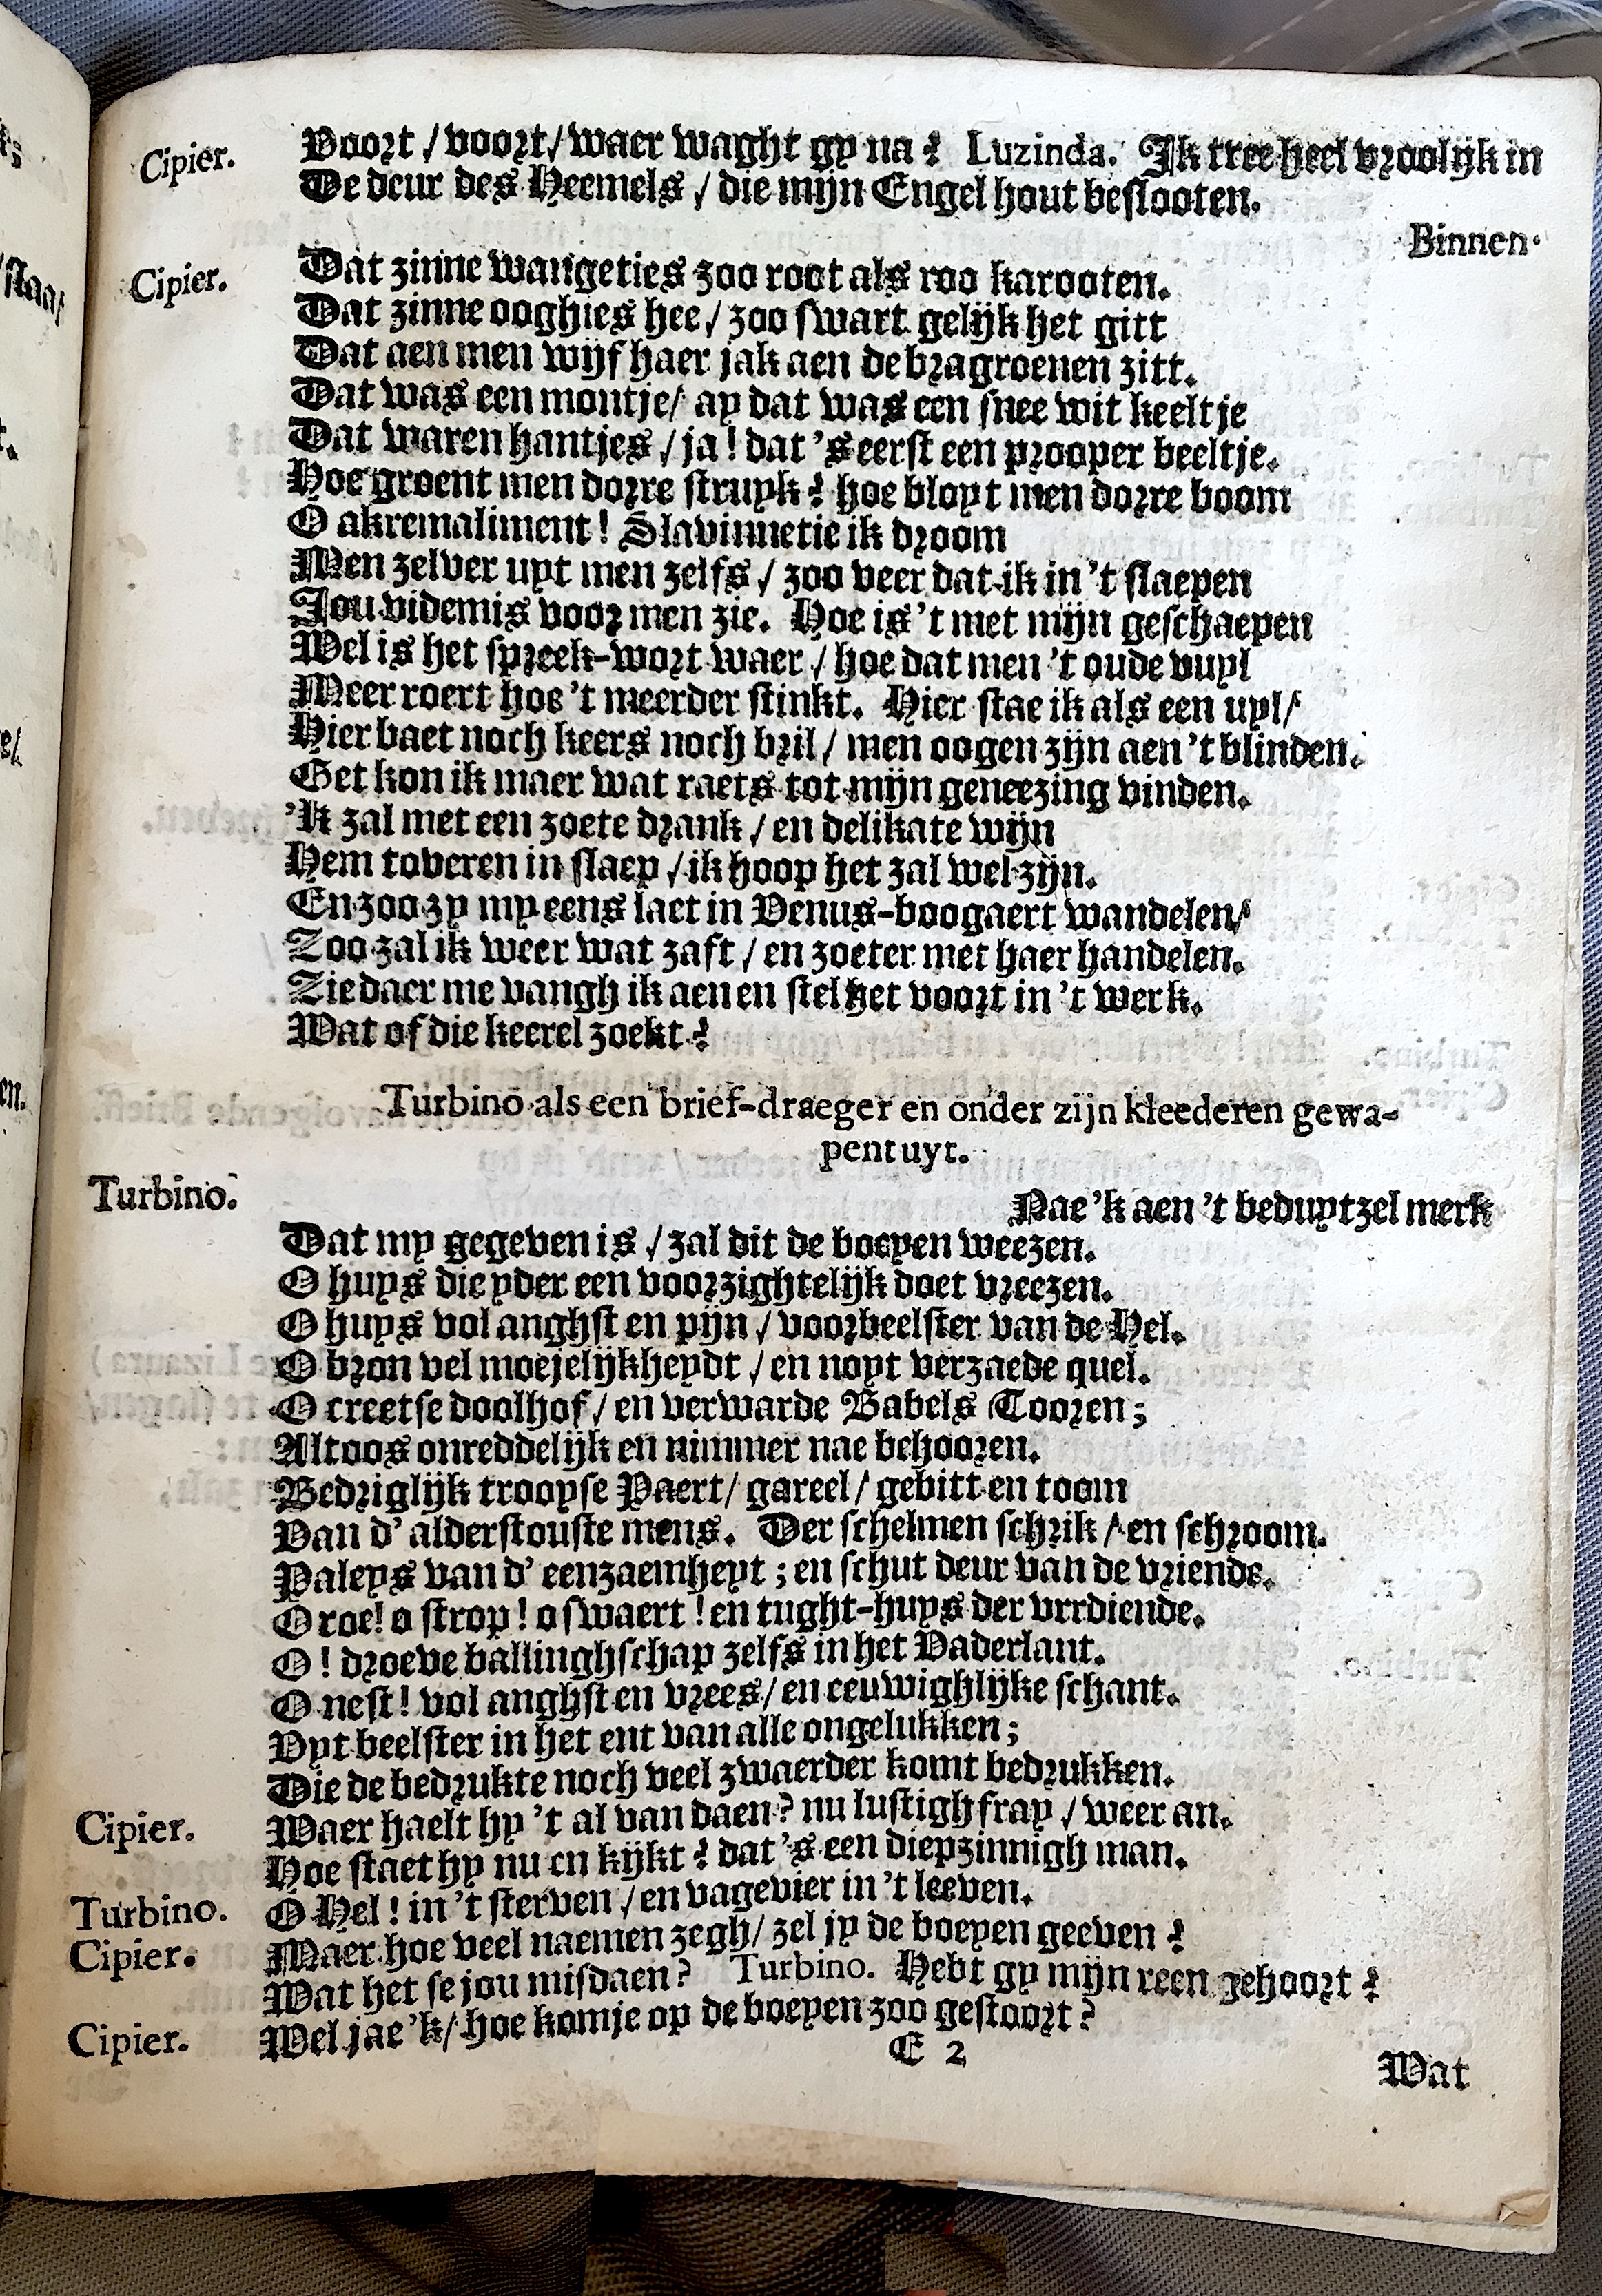 Cipier. Voort / voort / waer waght gy na? Luzinda. Ik tree heel vroolijk in
De deur des Heemels / die mijn Engel hout beslooten.
Binnen.
Cipier. Dat zinne wangeties zoo root als roo karooten.
Dat zinne ooghies hee / zoo swart gelijk het gitt
Dat aen men wijf haer jak aen de bragroenen zitt.
Dat was een montje / ay dat was een snee wit keeltje
Dat waren hantjes / ja! dat 's eerst een prooper beeltje.
Hoe groent men dorre struyk? hoe bloyt men dorre boom
O akremaliment! Slavinnetie ik droom
Men zelver uyt men zelfs / zoo veer dat ik in 't slaepen
Jou videmis voor men zie. Hoe is 't met mijn geschaepen
Wel is het spreek-wort waer / hoe dat men 't oude vuyl
Meer roert hoe 't meerder stinkt. Hier stae ik als een uyl /
Hier baet noch keers noch bril / men oogen zijn aen 't blinden.
Get kon ik maer wat raets tot mijn geneezing vinden.
'Ik zal met een zoete drank / en delikate wijn
Hem toveren in slaep / ik hoop het zal wel zijn.
En zoo zy my eens laet in Venus-boogaert wandelen /
Zoo zal ik weer wat zaft / en zoeter met haer handelen.
Zie daer me vangh ik aen en stel het voort in 't werk.
Wat of die keerel zoekt?
Turbino als een brief-draeger en onder zijn kleederen gewa-
pent uyt.
Turbino. Nae 'k aen 't beduytzel merk
Dat my gegeven is / zal dit de boeyen weezen.
O huys die yder een voorzightelijk doet vreezen.
O huys vol anghst en pijn / voorbeelster van de Hel.
O bron vel moejelijkheydt / en noyt verzaede quel.
O creetse doolhof / en verwarde Babels Tooren;
Altoos onreddelijk en nimmer nae behooren.
Bedriglijk trooyse Paert / gareel / gebitt en toom
Van d' alderstouste mens. Der schelmen schrik / en schroom.
Paleys van d' eenzaemheyt; en schut deur van de vriende.
O roe! o strop! o swaert! en tught-huys der vrrdiende.
O! droeve ballinghschap zelfs in het Vaderlant.
O nest! vol anghst en vrees / en eeuwighlijke schant.
Vyt beelster in het ent van alle ongelukken;
Die de bedrukte noch veel zwaerder komt bedrukken.
Cipier. Waer haelt hy 't al van daen? nu lustigh fray / weer an.
Hoe staet hy nu en kijkt? dat 's een diepzinnigh man.
Turbino. O Hel! in 't sterven / en vagevier in 't leeven.
Cipier. Maer hoe veel naemen zegh / zel jy de boeyen geeven?
Wat het se jou misdaen? Turbino. Hebt gy mijn reen gehoort?
Cipier. Wel jae 'k / hoe komje op de boeyen zoo gestoort?
E 2
Wat